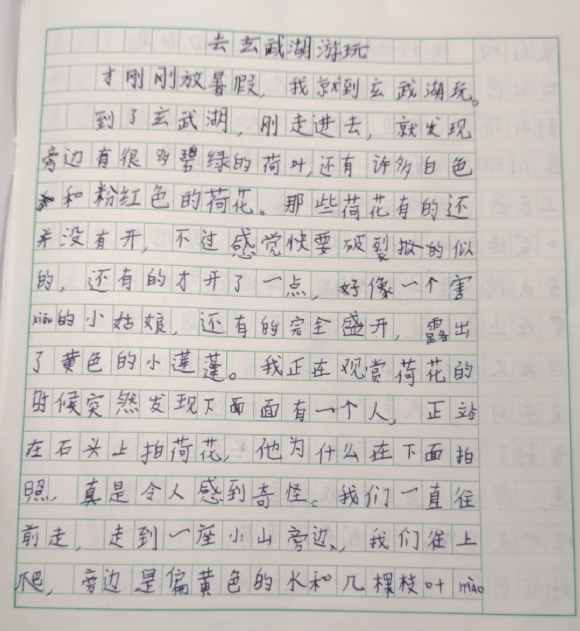 去玄武湖游玩
才刚刚放暑假，我就到玄武湖玩。
到了玄武湖，刚走进去，就发现
旁边有很多碧绿的荷叶，还有许多白色
和粉红色的荷花。那些荷花有的还
并没有开，不过感觉快要破裂的似
的，还有的才开了一点，好像一个害
xiū的小姑娘，还有的完全盛开，露出
了黄色的小莲蓬。我正在观赏荷花的
时候突然发现下面面有一个人，正站
在石头上拍荷花，他为什么在下面拍
照，真是令人感到奇怪。我们一直往
前走，走到一座小山旁边，我们往上
爬，旁边是偏黄色的水和几棵枝叶mào